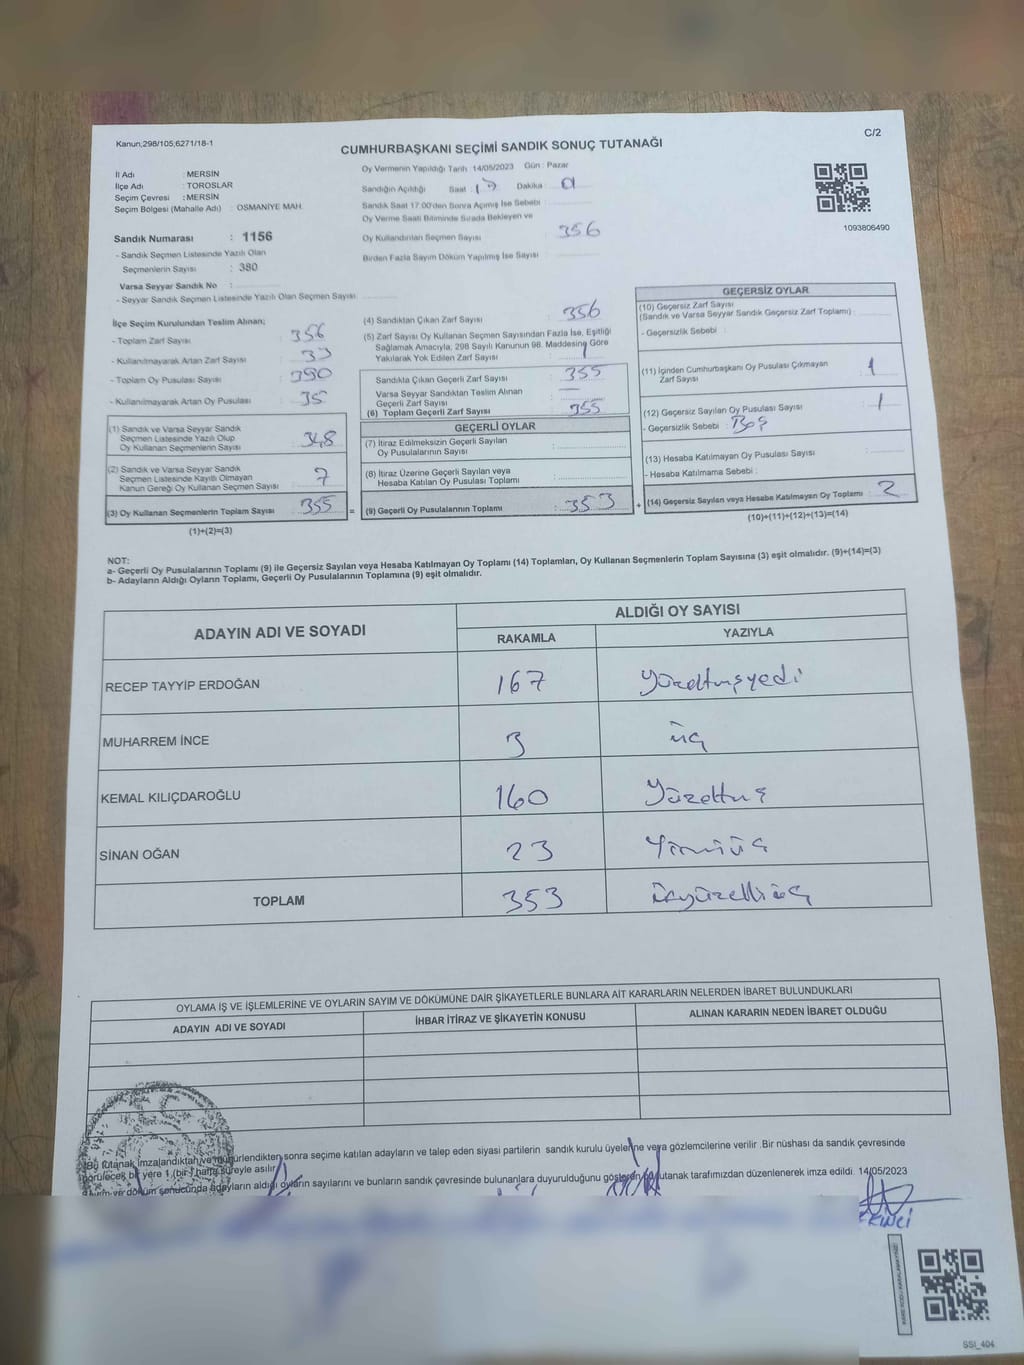 Kanun;298/105;6271/18-1
C/2
CUMHURBAŞKANI SEÇİMİ SANDIK SONUÇ TUTANAĞI
İl Adı : MERSİN
İlçe Adı : TOROSLAR
Seçim Çevresi : MERSİN
Seçim Bölgesi (Mahalle Adı) : OSMANİYE MAH.
Sandık Numarası : 1156
- Sandık Seçmen Listesinde Yazılı Olan
Seçmenlerin Sayısı : 380
Varsa Seyyar Sandık No :
- Seyyar Sandık Seçmen Listesinde Yazılı Olan Seçmen Sayısı
Oy Vermenin Yapıldığı Tarih 14/05/2023 Gün : Pazar
Sandığın Açıldığı Saat : 17 Dakika : 01
Sandık Saat 17:00'den Sonra Açmış İse Sebebi
Oy Verme Saati Bitiminde Sırada Bekleyen ve
Oy Kullandırılan Seçmen Sayısı : 356
Birden Fazla Sayım Döküm Yapılmış İse Sayısı
1093806490
İlçe Seçim Kurulundan Teslim Alınan;
- Toplam Zarf Sayısı
- Kullanılmayarak Artan Zarf Sayısı
- Toplam Oy Pusulası Sayısı : 390
- Kullanılmayarak Artan Oy Pusulası : 35
(1) Sandık ve Varsa Seyyar Sandık
Seçmen Listesinde Yazılı Olup
Oy Kullanan Seçmenlerin Sayısı : 348
(2) Sandık ve Varsa Seyyar Sandık
Seçmen Listesinde Kayıtlı Olmayan
Kanun Gereği Oy Kullanan Seçmen Sayısı 7
(3) Oy Kullanan Seçmenlerin Toplam Sayısı 355 =
(1)+(2)=(3)
(4) Sandıktan Çıkan Zarf Sayısı 356
(5) Zarf Sayısı Oy Kullanan Seçmen Sayısından Fazla İse, Eşitliği
Sağlamak Amacıyla, 298 Sayılı Kanunun 98. Maddesine Göre
Yakılarak Yok Edilen Zarf Sayısı : 1
Sandıkta Çıkan Geçerli Zarf Sayısı 355
Varsa Seyyar Sandıktan Teslim Alınan
Geçerli Zarf Sayısı —
(6) Toplam Geçerli Zarf Sayısı 355
GEÇERLİ OYLAR
(7) İtiraz Edilmeksizin Geçerli Sayılan
Oy Pusulalarının Sayısı :
(8) İtiraz Üzerine Geçerli Sayılan veya
Hesaba Katılan Oy Pusulası Toplamı :
(9) Geçerli Oy Pusulalarının Toplamı : 353 +
GEÇERSİZ OYLAR
(10) Geçersiz Zarf Sayısı
(Sandık ve Varsa Seyyar Sandık Geçersiz Zarf Toplamı) :
- Geçersizlik Sebebi :
(11) İçinden Cumhurbaşkanı Oy Pusulası Çıkmayan
Zarf Sayısı : 1
(12) Geçersiz Sayılan Oy Pusulası Sayısı : 1
- Geçersizlik Sebebi : Boş
(13) Hesaba Katılmayan Oy Pusulası Sayısı
- Hesaba Katılmama Sebebi :
(14) Geçersiz Sayılan veya Hesaba Katılmayan Oy Toplamı 2
(10)+(11)+(12)+(13)=(14)
NOT:
a- Geçerli Oy Pusulalarının Toplamı (9) ile Geçersiz Sayılan veya Hesaba Katılmayan Oy Toplamı (14) Toplamları, Oy Kullanan Seçmenlerin Toplam Sayısına (3) eşit olmalıdır. (9)+(14)=(3)
b- Adayların Aldığı Oyların Toplamı, Geçerli Oy Pusulalarının Toplamına (9) eşit olmalıdır.
ADAYIN ADI VE SOYADI ALDIĞI OY SAYISI
RAKAMLA YAZIYLA
RECEP TAYYİP ERDOĞAN 167 Yüzaltmışyedi
MUHARREM İNCE 3 üç
KEMAL KILIÇDAROĞLU 160 Yüzaltmış
SİNAN OĞAN 23 Yirmiüç
TOPLAM 353 üçyüzelliüç
OYLAMA İŞ VE İŞLEMLERİNE VE OYLARIN SAYIM VE DÖKÜMÜNE DAİR ŞİKAYETLERLE BUNLARA AİT KARARLARIN NELERDEN İBARET BULUNDUKLARI
ADAYIN ADI VE SOYADI İHBAR İTİRAZ VE ŞİKAYETİN KONUSU ALINAN KARARIN NEDEN İBARET OLDUĞU
Bu tutanak imzalandıktan ve mühürlendikten sonra seçime katılan adayların ve talep eden siyasi partilerin sandık kurulu üyelerine veya gözlemcilerine verilir. Bir nüshası da sandık çevresinde
görülecek bir yere 1 (bir) hafta süreyle asılır.
döküm sonucunda adayların aldığı oyların sayılarını ve bunların sandık çevresinde bulunanlara duyurulduğunu gösteren tutanak tarafımızdan düzenlenerek imza edildi. 14/05/2023
EKİNCİ
SSI_404